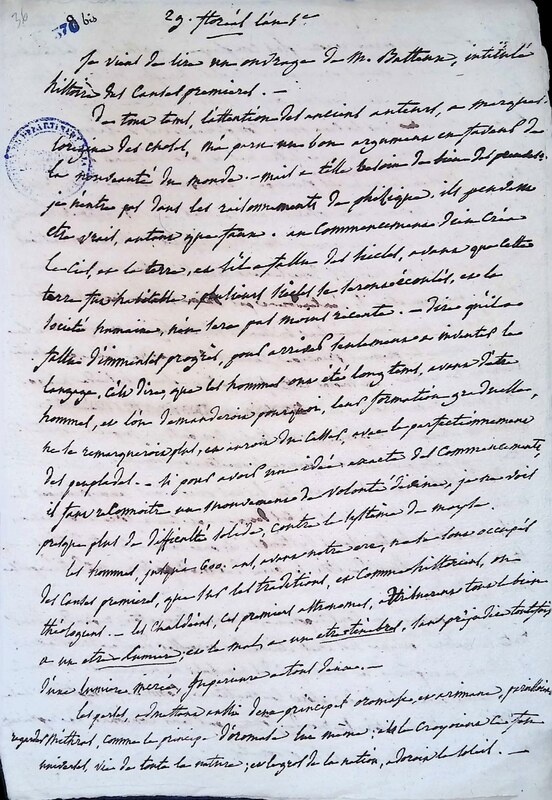 36
378 bis
29. floréal l'an 8e
Je viens de lire un ouvrage de M. Batteux, intitulé
histoire des Causes premieres. —
De tous tems, l'attention des anciens auteurs, a marquer
l'origine des choses, m'a paru un bon argument en faveur de
la nouveauté du monde. — mais a t'elle besoin de bien des preuves.
je n'entre pas dans les raisonnements de phisique. ils peuvent
être vrais, autant que faux. au Commencement dieu Créa
le Ciel, et la terre, et s'il a fallu des siecles, avant que cette
terre fut habitable, plusieurs siecles se seront écoulés, et la
société humaine, n'en sera pas moins recente. — Dire qu'il a
fallu d'immenses progrès, pour arriver seulement a inventer le
langage, c'est dire, que les hommes ont été long tems, avant d'être
hommes, et l'on demanderoit pourquoi, leur formation graduelle,
ne se remarqueroit plus, et auroit du Cesser, avec le perfectionnement
des peuplades. — si pour avoir une idée exacte des Commencements
il faut reconnoitre un mouvement de volonté divine, je ne vois
presque plus de difficulté solide, contre le systême de moyse.
Les hommes, jusqu'à 600. ans, avant notre ere, ne se sont occupés
des Causes premieres, que sur les traditions, et Comme historiens, ou
théologiens. — les Chaldéens, ces premiers astronomes, attribuerent tout le bien
a un être lumiere, et le mal, a un être ténébres, sans préjudice toutefois
d'une lumiere incréée, superieure a tout
les perses, admettant aussi deux principes oromase, et arimane,
regardoient Mithras, comme le principe d'oromase lui même; ils le Croyoient Ce feu
universel, vie de toute la nature; et le gros de la nation, adoroit le soleil. —